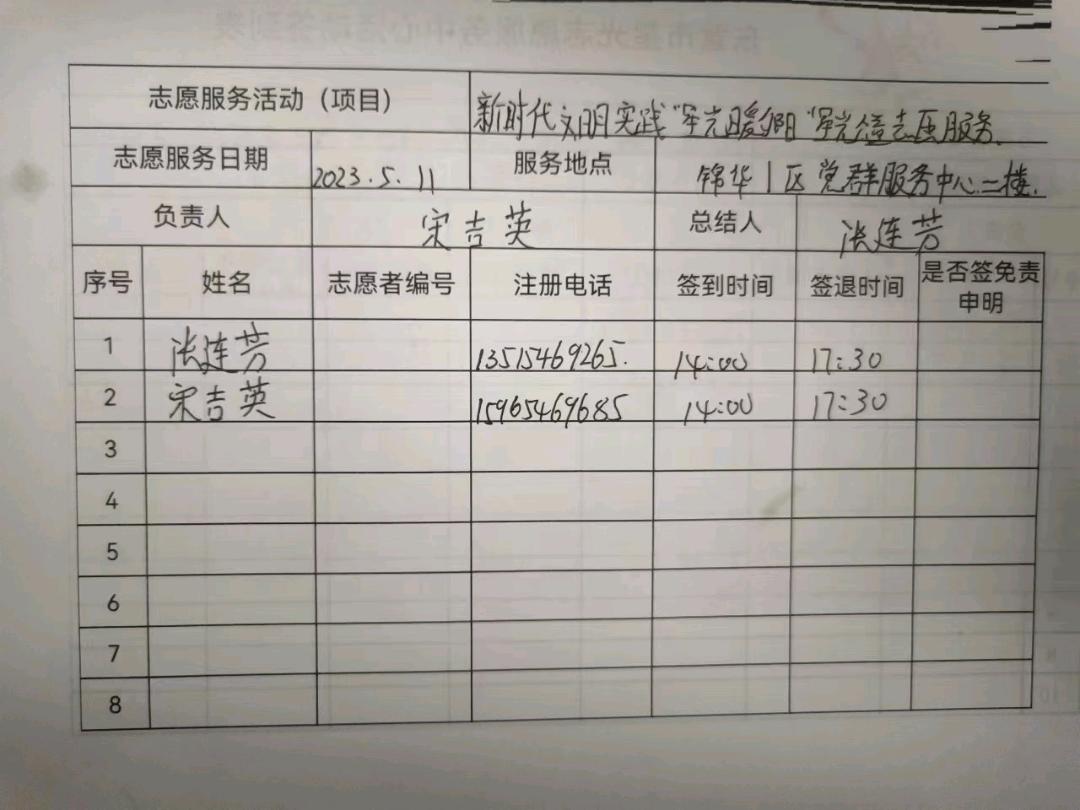 志愿服务活动（项目） 新时代文明实践"星光暖夕阳"星光益志愿服务.
志愿服务日期 2023.5.11 服务地点 锦华1区党群服务中心二楼.
负责人 宋吉英 总结人 张连芳
序号 姓名 志愿者编号 注册电话 签到时间 签退时间 是否签免责申明
1 张连芳 13515469265. 14:00 17:30
2 宋吉英 15965469685 14:00 17:30
3
4
5
6
7
8